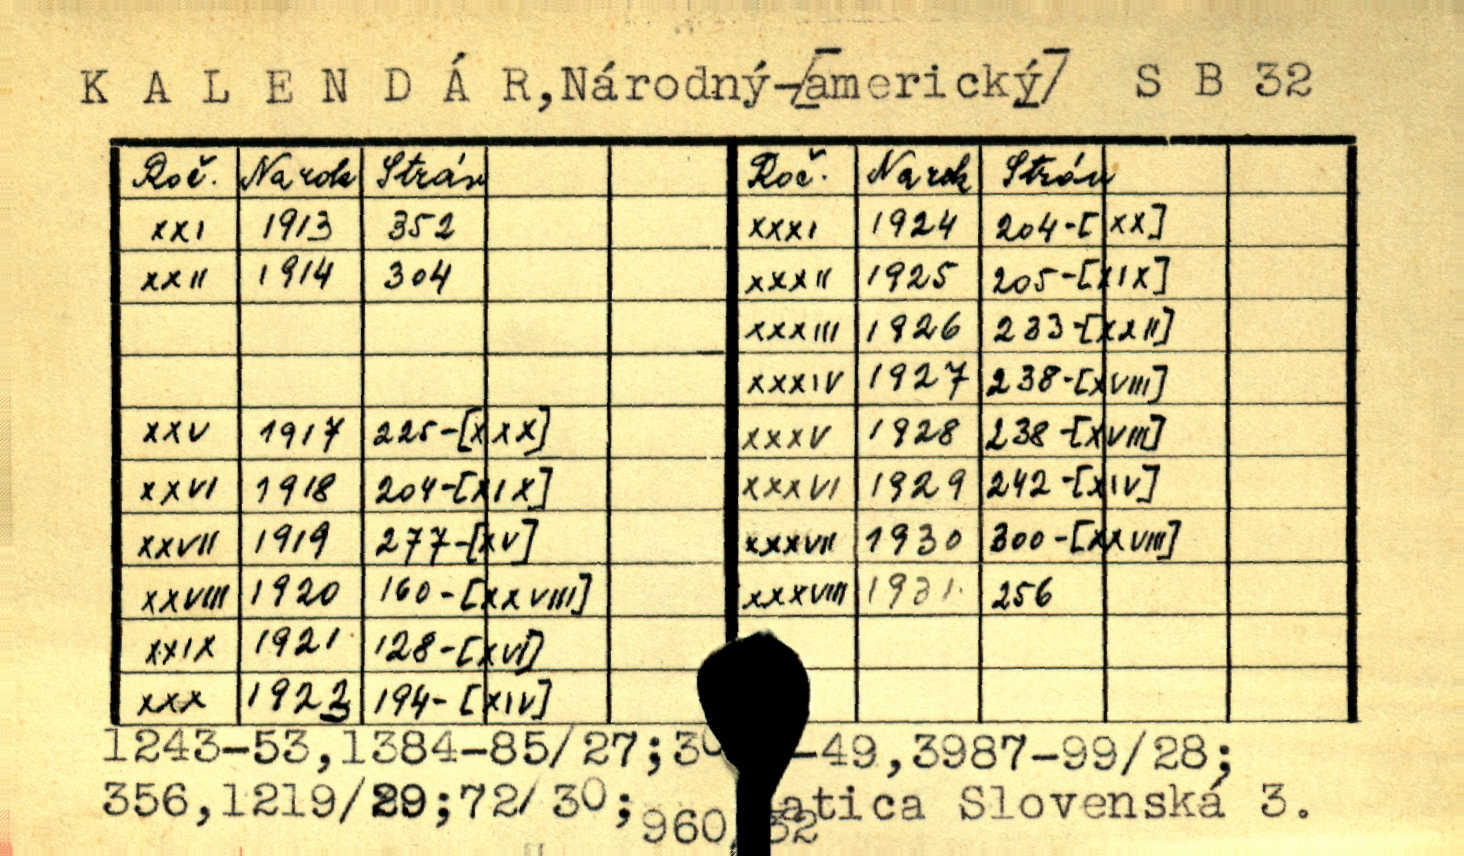 K A L E N D Á R, Národný-/americký/ S B 32
Roč. Na rok Strán Roč. Na rok Strán
XXI 1913 352 XXXI 1924 204-[XX]
XXII 1914 304 XXXII 1925 205-[XIX]
XXXIII 1926 233-[XXII]
XXXIV 1927 238-[XVIII]
XXV 1917 225-[XXX] XXXV 1928 238-[XVIII]
XXVI 1918 204-[XIX] XXXVI 1929 242-[XIV]
XXVII 1919 277-[XV] XXXVII 1930 300-[XXVIII]
XXVIII 1920 160-[XXVIII] XXXVIII 1931. 256
XXIX 1921 128-[XVI]
XXX 1923 194-[XIV]
1243-53,1384-85/27; -49,3987-99/28;
356,1219/29;72/30; Slovenská 3.